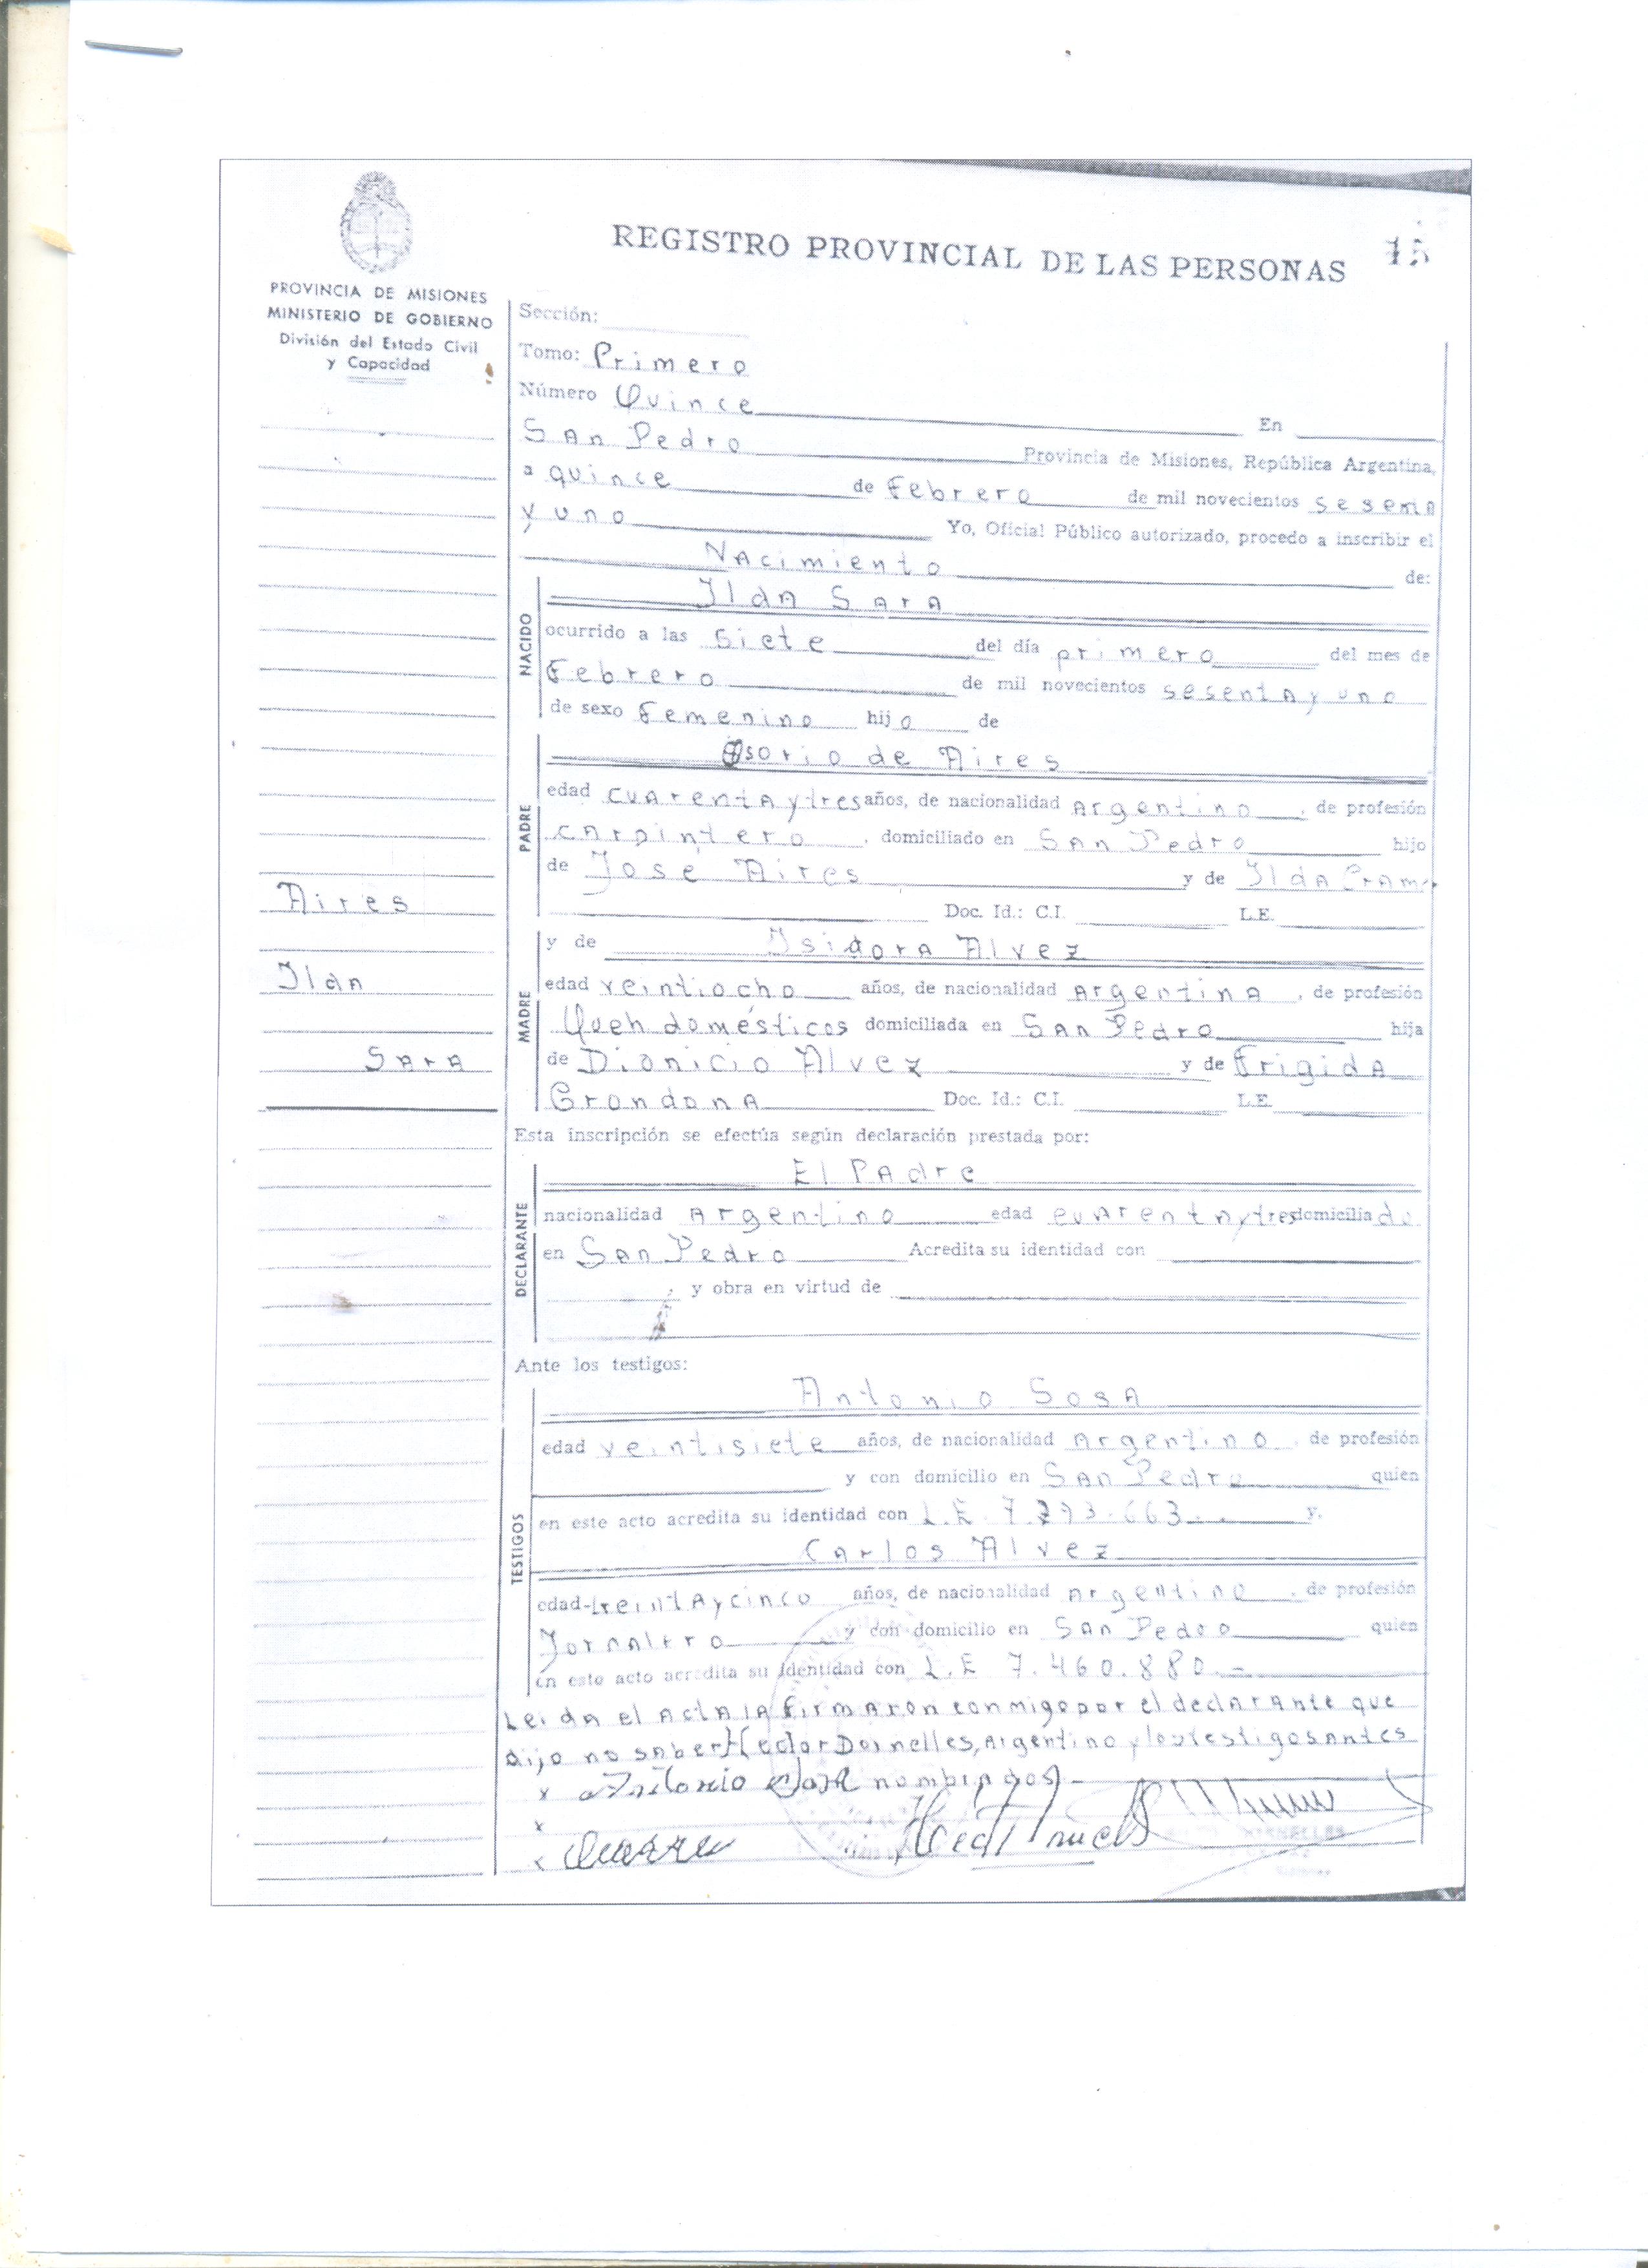 REGISTRO PROVINCIAL DE LAS PERSONAS 15
PROVINCIA DE MISIONES
MINISTERIO DE GOBIERNO
División del Estado Civil
y Capacidad
Sección:
Tomo: Primero
Número Quince En
San Pedro Provincia de Misiones, República Argentina,
a quince de Febrero de mil novecientos sesena
y uno Yo, Oficial Público autorizado, procedo a inscribir el
Nacimiento de:
NACIDO
Ilda Sara
ocurrido a las siete del día primero del mes de
Febrero de mil novecientos sesenta y uno
de sexo Femenino hijo de
PADRE
Osorio de Aires
edad cuarenta y tres años, de nacionalidad Argentino, de profesión
carpintero, domiciliado en San Pedro hijo
de José Aires y de Ilda
Doc. Id.: C.I. L.E.
Aires
Ilda
Sara
MADRE
y de Isidora Alvez
edad veintiocho años, de nacionalidad Argentina, de profesión
Queh domésticos domiciliada en San Pedro hija
de Dionicio Alvez y de Frigida
Grondona Doc. Id.: C.I. L.E.
Esta inscripción se efectúa según declaración prestada por:
DECLARANTE
El Padre
nacionalidad Argentino edad cuarenta y tres domiciliado
en San Pedro Acredita su identidad con
y obra en virtud de
Ante los testigos:
TESTIGOS
Antonio Sosa
edad veintisiete años, de nacionalidad Argentino, de profesión
y con domicilio en San Pedro quien
en este acto acredita su identidad con L.E. y.
Carlos Alvez
edad treinta y cinco años, de nacionalidad Argentino, de profesión
Jornalero y con domicilio en San Pedro quien
en este acto acredita su identidad con L.E 7.460.880.-
Leida el acta la firmaron conmigo por el declarante que
dijo no saber Hector Dornelles, Argentino y los testigos antes
x Antonio Sosa nombrados.-
x
x